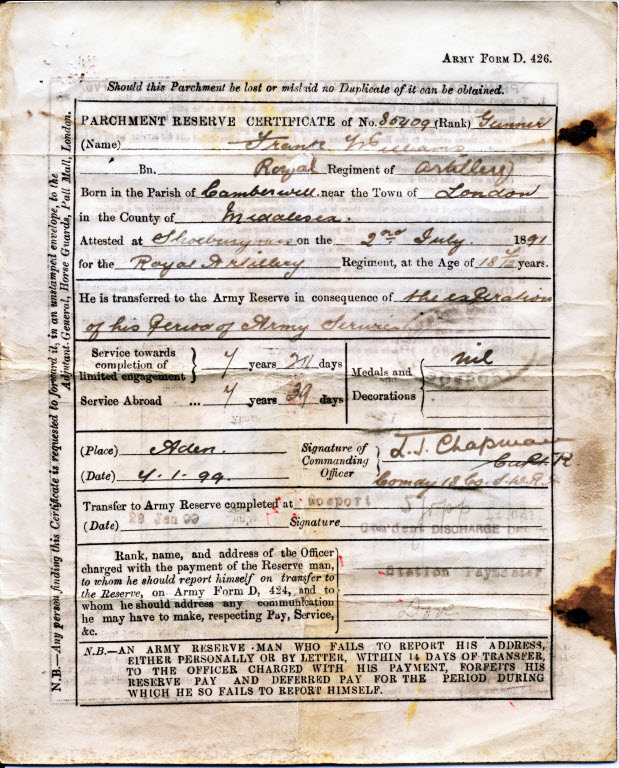 ARMY FORM D. 426.
Should this Parchment be lost or mislaid no Duplicate of it can be obtained.
PARCHMENT RESERVE CERTIFICATE of No. 85409 (Rank) Gunner
(Name) Frank Williams
Bn. Royal Regiment of Artillery
Born in the Parish of Camberwell near the Town of London
in the County of Middlesex.
Attested at Shoeburyness on the 2nd July. 1891
for the Royal Artillery Regiment, at the Age of 18 years.
He is transferred to the Army Reserve in consequence of the expiration
of his Period of Army Service
Service towards completion of limited engagement } 7 years days
Service Abroad ... 7 years 39 days
Medals and Decorations { nil
(Place) Aden.
(Date) 4.1.99
Signature of Commanding Officer } Chapman
Capt. R
Comdg 18 Co.
Transfer to Army Reserve completed at Gosport
(Date) 29 Jan 99 Signature
DISCHARGE
Rank, name, and address of the Officer
charged with the payment of the Reserve man,
to whom he should report himself on transfer to
the Reserve, on Army Form D, 424, and to
whom he should address any communication
he may have to make, respecting Pay, Service,
&c.
Station Paymaster
N.B.—AN ARMY RESERVE MAN WHO FAILS TO REPORT HIS ADDRESS,
EITHER PERSONALLY OR BY LETTER, WITHIN 14 DAYS OF TRANSFER,
TO THE OFFICER CHARGED WITH HIS PAYMENT, FORFEITS HIS
RESERVE PAY AND DEFERRED PAY FOR THE PERIOD DURING
WHICH HE SO FAILS TO REPORT HIMSELF.
N.B.—Any person finding this Certificate is requested to forward it, in an unstamped envelope, to the
Adjutant-General, Horse Guards, Pall Mall, London.